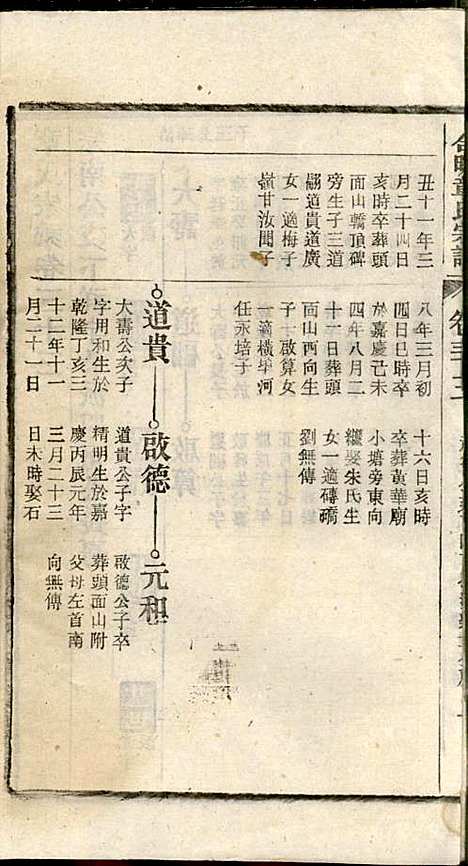 丑十一年三
月二十四日
亥時卒葬頭
面山轎頂磡
旁生子三道
翮道貴道廣
女一適梅子
嶺甘汝聞子
八年三月初
四日巳時卒
於嘉慶己未
四年八月二
十二日葬頭
面山西向生
子一啟算女
一適橫學河
任永培子
十六日亥時
卒葬黃華廟
小塘旁東向
繼娶朱氏生
女一適磚礄
劉無傳
道貴
大壽公次子
字用和生於
乾隆丁亥三
十二年十一
月二十一日
啟德
道貴公子字
精明生於嘉
慶丙辰元年
三月二十三
日未時娶石
元和
啟德公子卒
葬頭面山附
父母左首南
向無傳